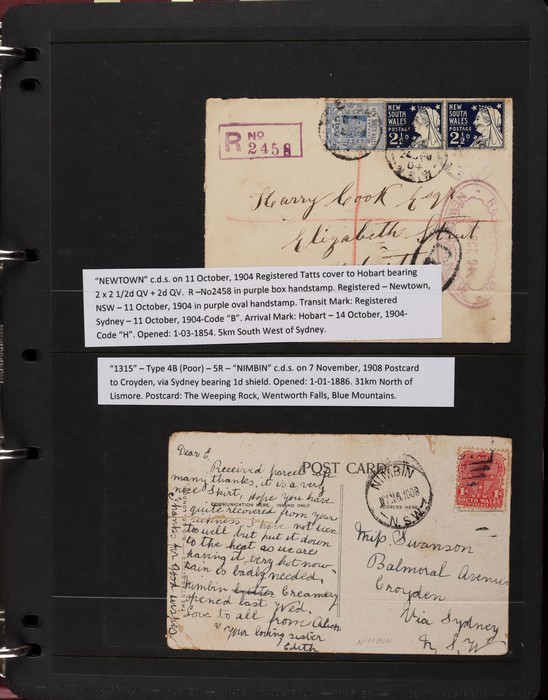 R No
2458
NEW
SOUTH
WALES
POSTAGE
2½D
NEW
SOUTH
WALES
POSTAGE
2½D
04
Harry Cook Esq
Elizabeth Street
"NEWTOWN" c.d.s. on 11 October, 1904 Registered Tatts cover to Hobart bearing
2 x 2 1/2d QV + 2d QV. R –No2458 in purple box handstamp. Registered – Newtown,
NSW – 11 October, 1904 in purple oval handstamp. Transit Mark: Registered
Sydney – 11 October, 1904-Code "B". Arrival Mark: Hobart – 14 October, 1904-
Code "H". Opened: 1-03-1854. 5km South West of Sydney.
"1315" – Type 4B (Poor) – 5R – "NIMBIN" c.d.s. on 7 November, 1908 Postcard
to Croyden, via Sydney bearing 1d shield. Opened: 1-01-1886. 31km North of
Lismore. Postcard: The Weeping Rock, Wentworth Falls, Blue Mountains.
POST CARD
COMMUNICATION HERE, INLAND ONLY
ADDRESS HERE
Dear E.
Received parcel
many thanks, it is a very
nice Skirt, Hope you have
quite recovered from your
sickness I have not been
too well, but put it down
to the heat as we are
having it very hot now
rain is badly needed,
Nimbin Creamery
opened last Wed.
Love to all from
Your loving sister
Edith
Thanks for good wishes
NIMBIN
1908
N.S.W
SOUTH WALES
Miss Swanson
Balmoral Avenue
Croyden
Via Sydney
N. S. W
NIMBIN